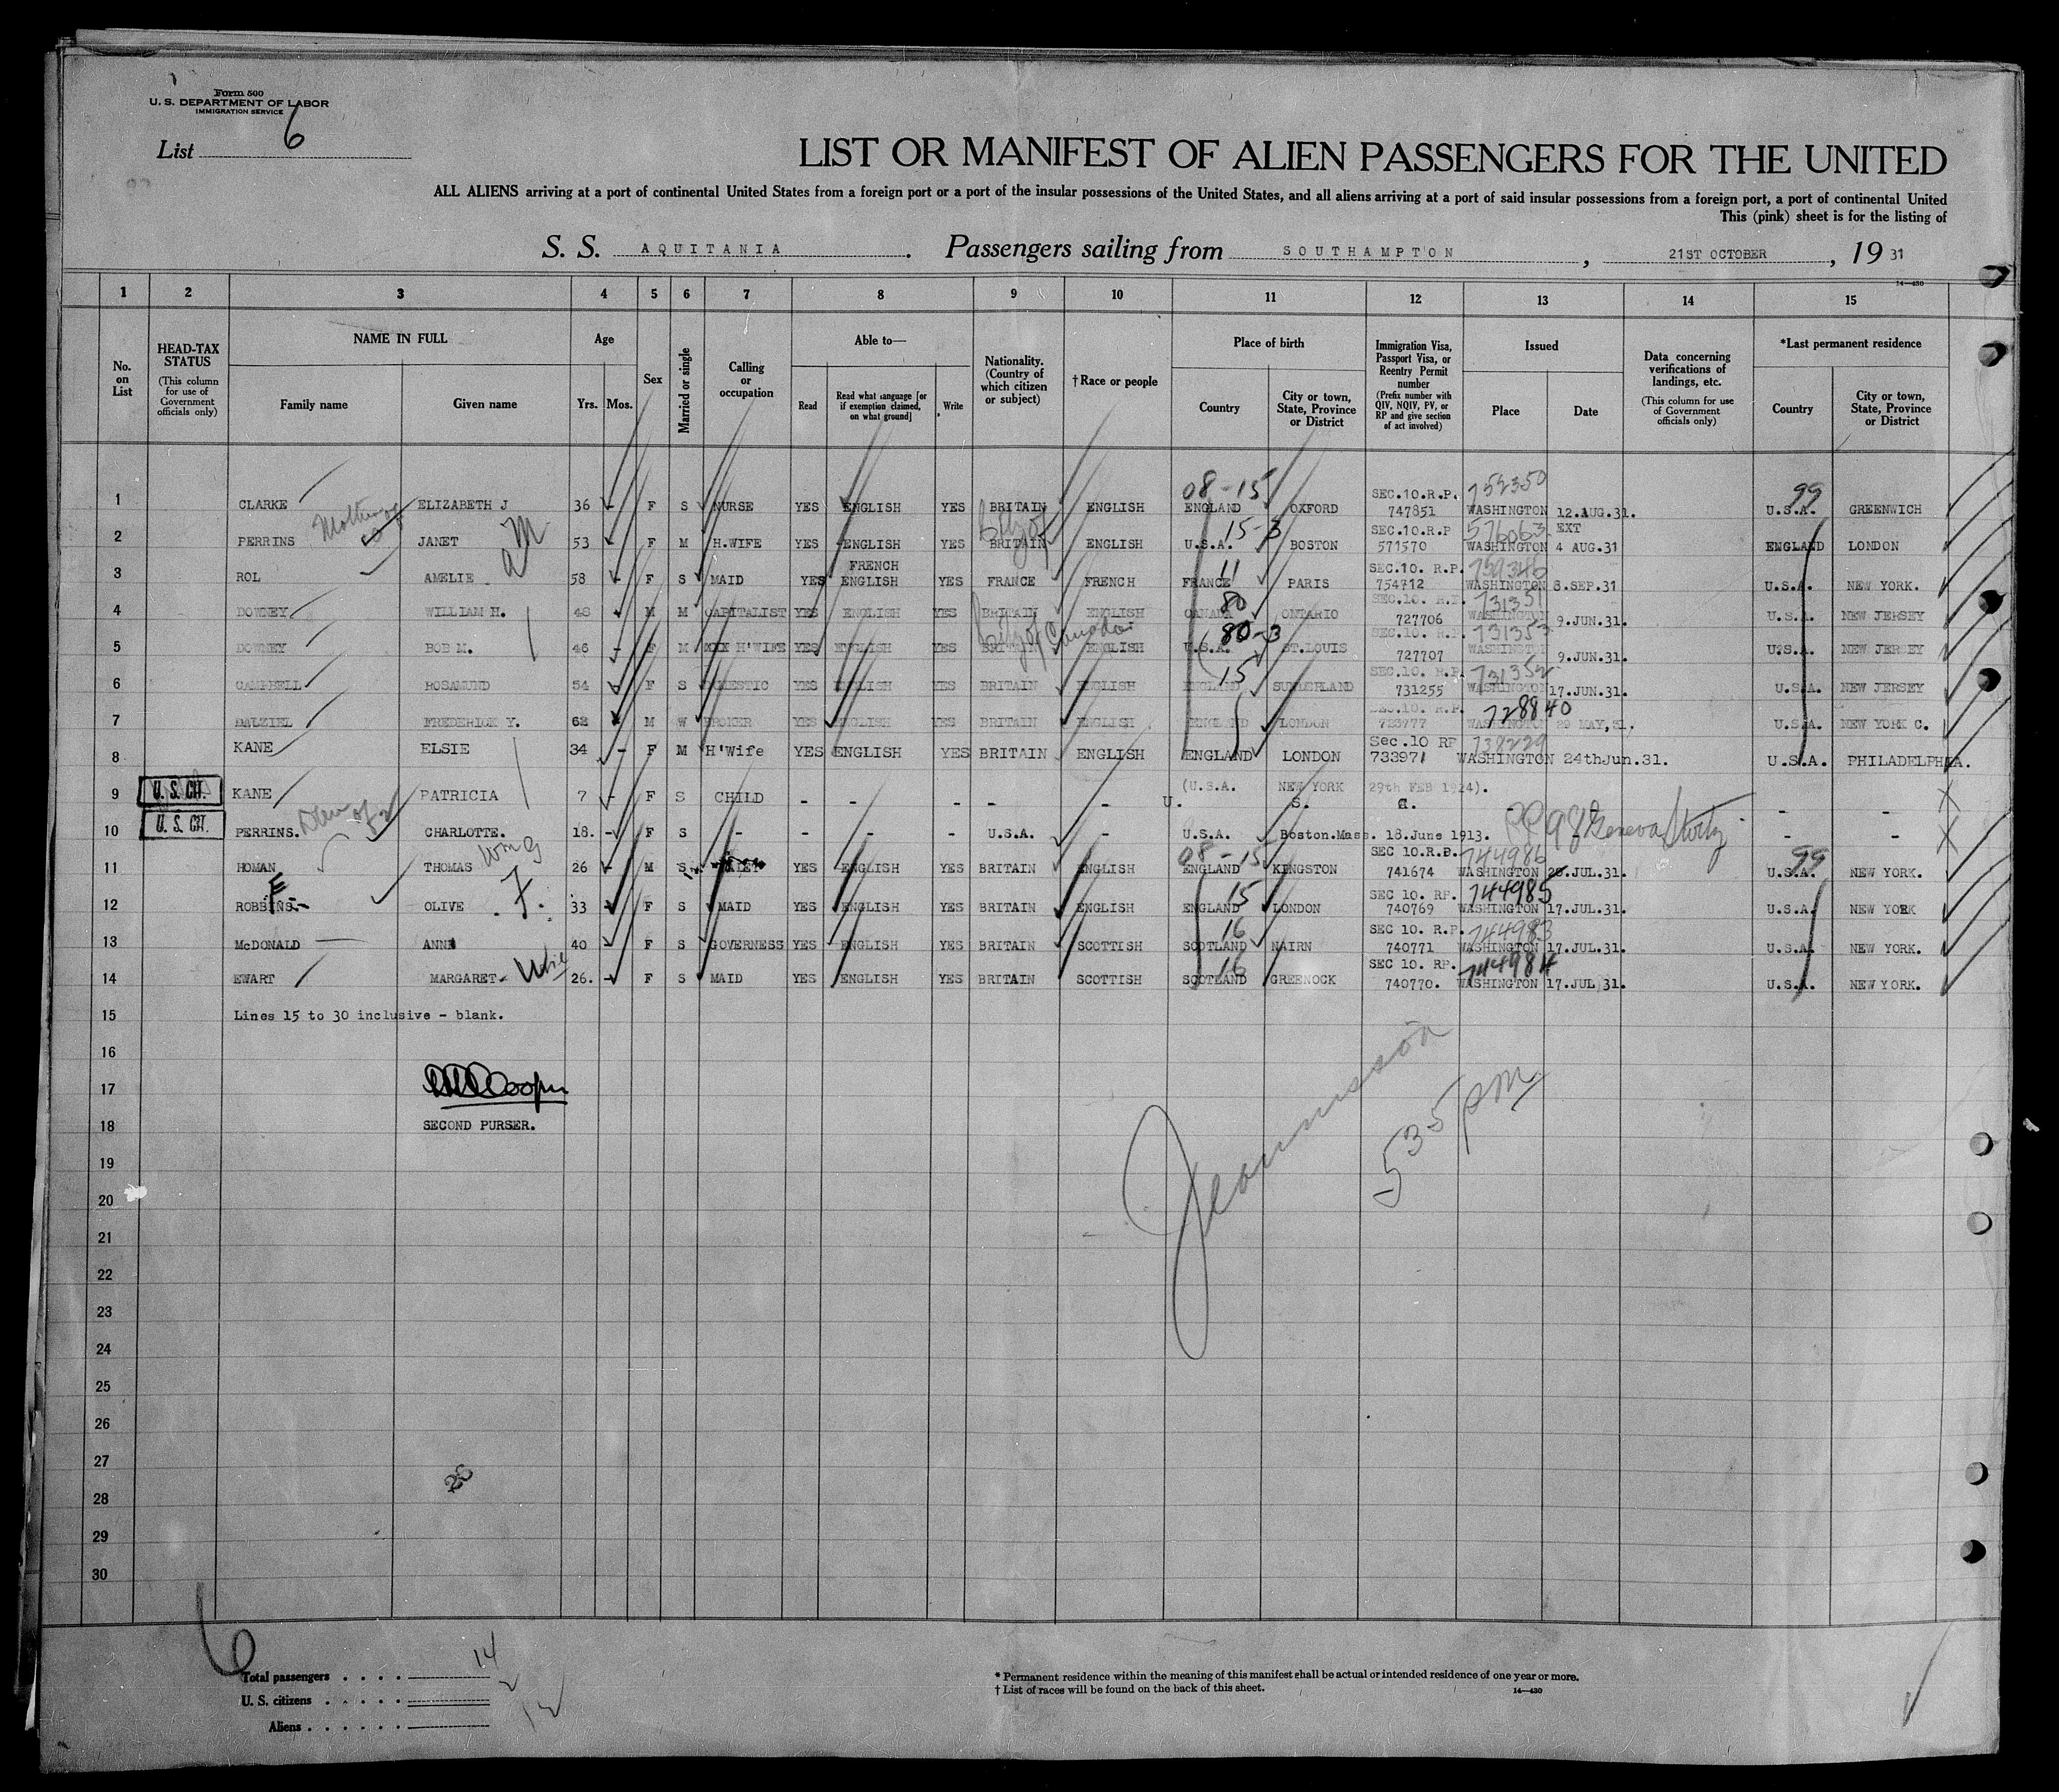 Form 500
U. S. DEPARTMENT OF LABOR
IMMIGRATION SERVICE
List 6
LIST OR MANIFEST OF ALIEN PASSENGERS FOR THE UNITED
ALL ALIENS arriving at a port of continental United States from a foreign port or a port of the insular possessions of the United States, and all aliens arriving at a port of said insular possessions from a foreign port, a port of continental United
This (pink) sheet is for the listing of
S. S. AQUITANIA. Passengers sailing from SOUTHAMPTON, 21ST OCTOBER, 19 31
14—430
1 2 3 4 5 6 7 8 9 10 11 12 13 14 15
No. on List
HEAD-TAX STATUS
(This column for use of Government officials only)
NAME IN FULL
Family name Given name
Age
Yrs. Mos.
Sex
Married or single
Calling or occupation
Able to—
Read
Read what language [or if exemption claimed, on what ground]
Write
Nationality. (Country of which citizen or subject)
†Race or people
Place of birth
Country
City or town, State, Province or District
Immigration Visa, Passport Visa, or Reentry Permit number
(Prefix number with QIV, NQIV, PV, or RP and give section of act involved)
Issued
Place Date
Data concerning verifications of landings, etc.
(This column for use of Government officials only)
*Last permanent residence
Country
City or town, State, Province or District
08-15 SEC.10.R.P. 752350 99
1 CLARKE ELIZABETH J 36 - F S NURSE YES ENGLISH YES BRITAIN ENGLISH ENGLAND OXFORD 747851 WASHINGTON 12.AUG.31. U.S.A. GREENWICH
Mother of M 15-3 SEC.10.R.P 576063 EXT
2 PERRINS JANET 53 - F M H.WIFE YES ENGLISH YES BRITAIN ENGLISH U.S.A. BOSTON 571570 WASHINGTON 4 AUG.31 ENGLAND LONDON
FRENCH 11 SEC.10. R.P. 759346
3 ROL AMELIE 58 - F S MAID YES ENGLISH YES FRANCE FRENCH FRANCE PARIS 754712 WASHINGTON 8.SEP.31 U.S.A. NEW YORK.
80 SEC.10. R.P. 731351
4 DOWNEY WILLIAM H. 48 M M CAPITALIST YES ENGLISH YES BRITAIN ENGLISH CANADA ONTARIO 727706 WASHINGTON 9.JUN.31. U.S.A. NEW JERSEY
Ctzy of Canada 80-3 SEC.10. R.P. 731353
5 DOWNEY BOB M. 46 - F M XXX H'WIFE YES ENGLISH YES BRITAIN ENGLISH U.S.A. ST.LOUIS 727707 WASHINGTON 9.JUN.31. U.S.A. NEW JERSEY
15 SEC.10. R.P. 731352
6 CAMPBELL ROSAMUND 54 F S DOMESTIC YES ENGLISH YES BRITAIN ENGLISH ENGLAND SUNDERLAND 731255 WASHINGTON 17.JUN.31. U.S.A. NEW JERSEY
SEC.10. R.P. 728840
7 DALZIEL FREDERICK Y. 62 M W BROKER YES ENGLISH YES BRITAIN ENGLISH ENGLAND LONDON 723777 WASHINGTON 29 MAY,31. U.S.A. NEW YORK C.
Sec.10 RP 738229
8 KANE ELSIE 34 - F M H'Wife YES ENGLISH YES BRITAIN ENGLISH ENGLAND LONDON 733971 WASHINGTON 24thJun.31. U.S.A. PHILADELPHIA.
U. S. CIT.
9 KANE PATRICIA 7 - F S CHILD - - - - - (U.S.A. NEW YORK 29th FEB 1924). U. S. C. - -
U. S. CIT.
10 PERRINS. CHARLOTTE. 18. - F S - - - - U.S.A. - U.S.A. Boston.Mass. 18.June 1913. PP 98 Geneva - -
08-15 SEC 10.R.P. 744986 99
11 HOMAN THOMAS 26 - M S VALET YES ENGLISH YES BRITAIN ENGLISH ENGLAND KINGSTON 741674 WASHINGTON 20.JUL.31. U.S.A. NEW YORK.
E 15 SEC 10. RP. 744985
12 ROBBINS. OLIVE F. 33 - F S MAID YES ENGLISH YES BRITAIN ENGLISH ENGLAND LONDON 740769 WASHINGTON 17.JUL.31. U.S.A. NEW YORK
16 SEC 10. R.P. 744983
13 McDONALD ANNE 40 F S GOVERNESS YES ENGLISH YES BRITAIN SCOTTISH SCOTLAND NAIRN 740771 WASHINGTON 17.JUL.31. U.S.A. NEW YORK.
16 SEC 10. RP. 744984
14 EWART MARGARET 26. - F S MAID YES ENGLISH YES BRITAIN SCOTTISH SCOTLAND GREENOCK 740770. WASHINGTON 17.JUL 31. U.S.A. NEW YORK.
15 Lines 15 to 30 inclusive - blank.
16
17 Cooper
18 SECOND PURSER.
5 35 PM
19
20
21
22
23
24
25
26
27
28
29
30
6
Total passengers . . . . 14
U. S. citizens . . . . . 2
Aliens . . . . . . 12
* Permanent residence within the meaning of this manifest shall be actual or intended residence of one year or more.
† List of races will be found on the back of this sheet.
14—430